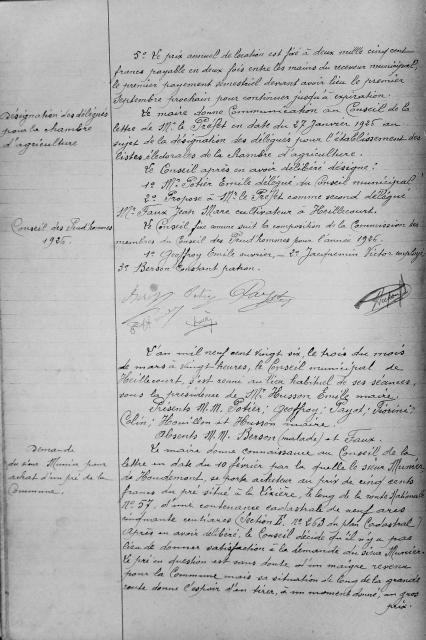 5º Le prix annuel de location est fixé à deux mille cinq cent
francs payable en deux fois entre les mains du receveur municipal,
le premier payement semestriel devant avoir lieu le premier
Septembre prochain pour continuer jusqu'à expiration.
Désignation des délégués
pour la chambre
d'agriculture
Le maire donne Communication au Conseil de la
lettre de Mr le Préfet en date du 27 Janvier 1926 au
sujet de la désignation des délégués pour l'établissement des
listes électorales de la chambre d'agriculture.
Le Conseil après en avoir délibéré désigne:
1º Mr Potier Emile délégué du Conseil municipal
2º Propose à Mr le Préfet comme second délégué
Mr Faux Jean Marc cultivateur à Heillecourt.
Conseil des Prud'hommes
1926.
Le Conseil fixe ainsi la composition de la Commission des
membres du Conseil des Prud'hommes pour l'année 1926.
1º Geoffroy Emile ouvrier, — 2º Jacquemin Victor employé
3º Berson Constant patron.
L'an mil neuf cent vingt six, le trois du mois
de mars à vingt heures, le Conseil municipal de
Heillecourt, s'est réuni au lieu habituel de ses séances,
sous la présidence de Mr Husson Emile maire
Présents M.M. Potier; Geoffroy; Payot; Fiorini;
Colin; Houillon et Husson maire.
Absents M.M. Berson (malade) et Faux.
Demande
du sieur Munier pour
achat d'un pré de la
Commune.
Le maire donne connaissance au Conseil de la
lettre en date du 10 février par la quelle le sieur Munier
de Houdemont, se porte acheteur au prix de cinq cents
francs du pré situé à la Lixière, le long de la route Nationale
Nº 57, d'une contenance cadastrale de neuf ares
cinquante centiares (Section B. nº 263 du plan Cadastral)
Après en avoir délibéré, le Conseil décide qu'il n'y a pas
lieu de donner satisfaction à la demande du sieur Munier.
Le pré en question est sans doute d'un maigre revenu
pour la Commune mais sa situation de long de la grande
route donne l'espoir d'en tirer, à un moment donné, un gros
prix.